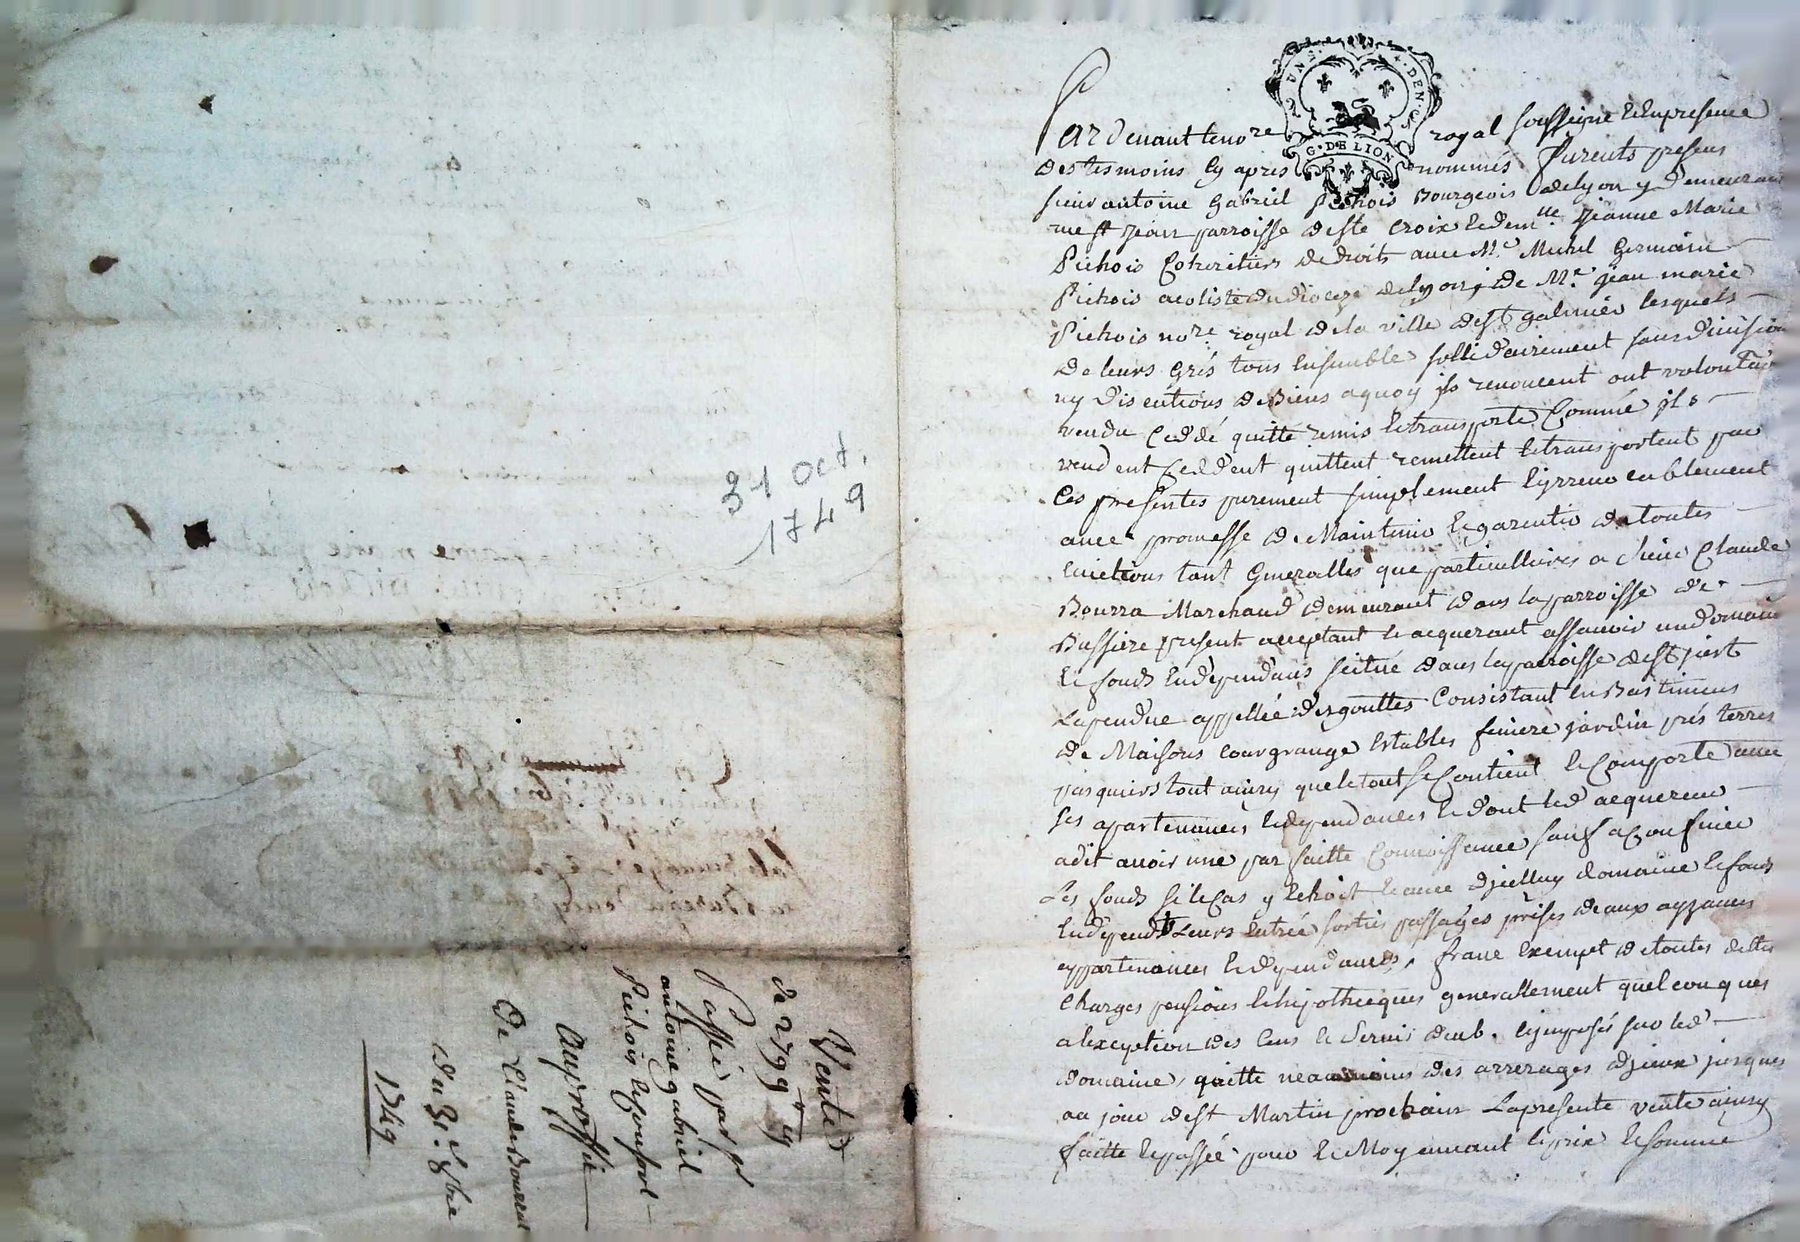 31 oct.
1749
Vente
de 2799 ₶ 19 s
Passée par sr
antoine gabriel
Pichois & Consort
au proffit
De Claude Bourrat
du 31e 8bre
1749
G. DE LION
Pardevant le nore royal soussigné & en presence
des tesmoins cy apres nommés furents presens
sieur antoine Gabriel Pichois Bourgeois de lyon y demeurant
rue st jean parroisse de ste Croix & demlle jeanne Marie
Pichois Coheritiers de droits avec Me Michel Germain
Pichois acoliste du dioceze de lyon, & de Me jean marie
Pichois nore royal de la ville de st galmier lesquels
de leurs grés tous ensemble sollidairement sans division
ny discutions de Biens a quoy ils renoncent ont volontairt
vendu Ceddé quitté remis & transporté Comme ils
vendent Ceddent quittent remettent & transportent par
Ces presentes purement simplement & irrevocablement
avec promesse de Maintenir & garentir de toutes
Evictions tant Generalles que particullieres a sieur Claude
Bourra Marchand demeurant dans la parroisse de
Bussiere present acceptant & acquerant assavoir un domaine
& fonds en dependans scitué dans la parroisse de st just
Lapendue appellée desgouttes Consistant en Bastimens
de Maisons cour grange Estables feniere jardin prés terres
pasquiers tout ainsy que le tout se Contient & Comporte avec
ses apartenances & dependances & dont led acquereur
a dit avoir une parfaitte Connoissance sauf a Confiner
Les fonds si le Cas y Echoit & avec d'icelluy domaine & fonds
en dependt Leurs entrée sorties passages prises deaux aysances
appartenances & dependances, franc Exempt de toutes dettes
Charges pensions & hipotheques generallement quelconques
a lexception des Cens & Servis deub. & imposés sur led
domaine, quitte neanmoins des arrerages d'jceux jusques
au jour de st Martin prochain La presente vente ainsy
faitte & passée pour & Moyennant le prix & somme